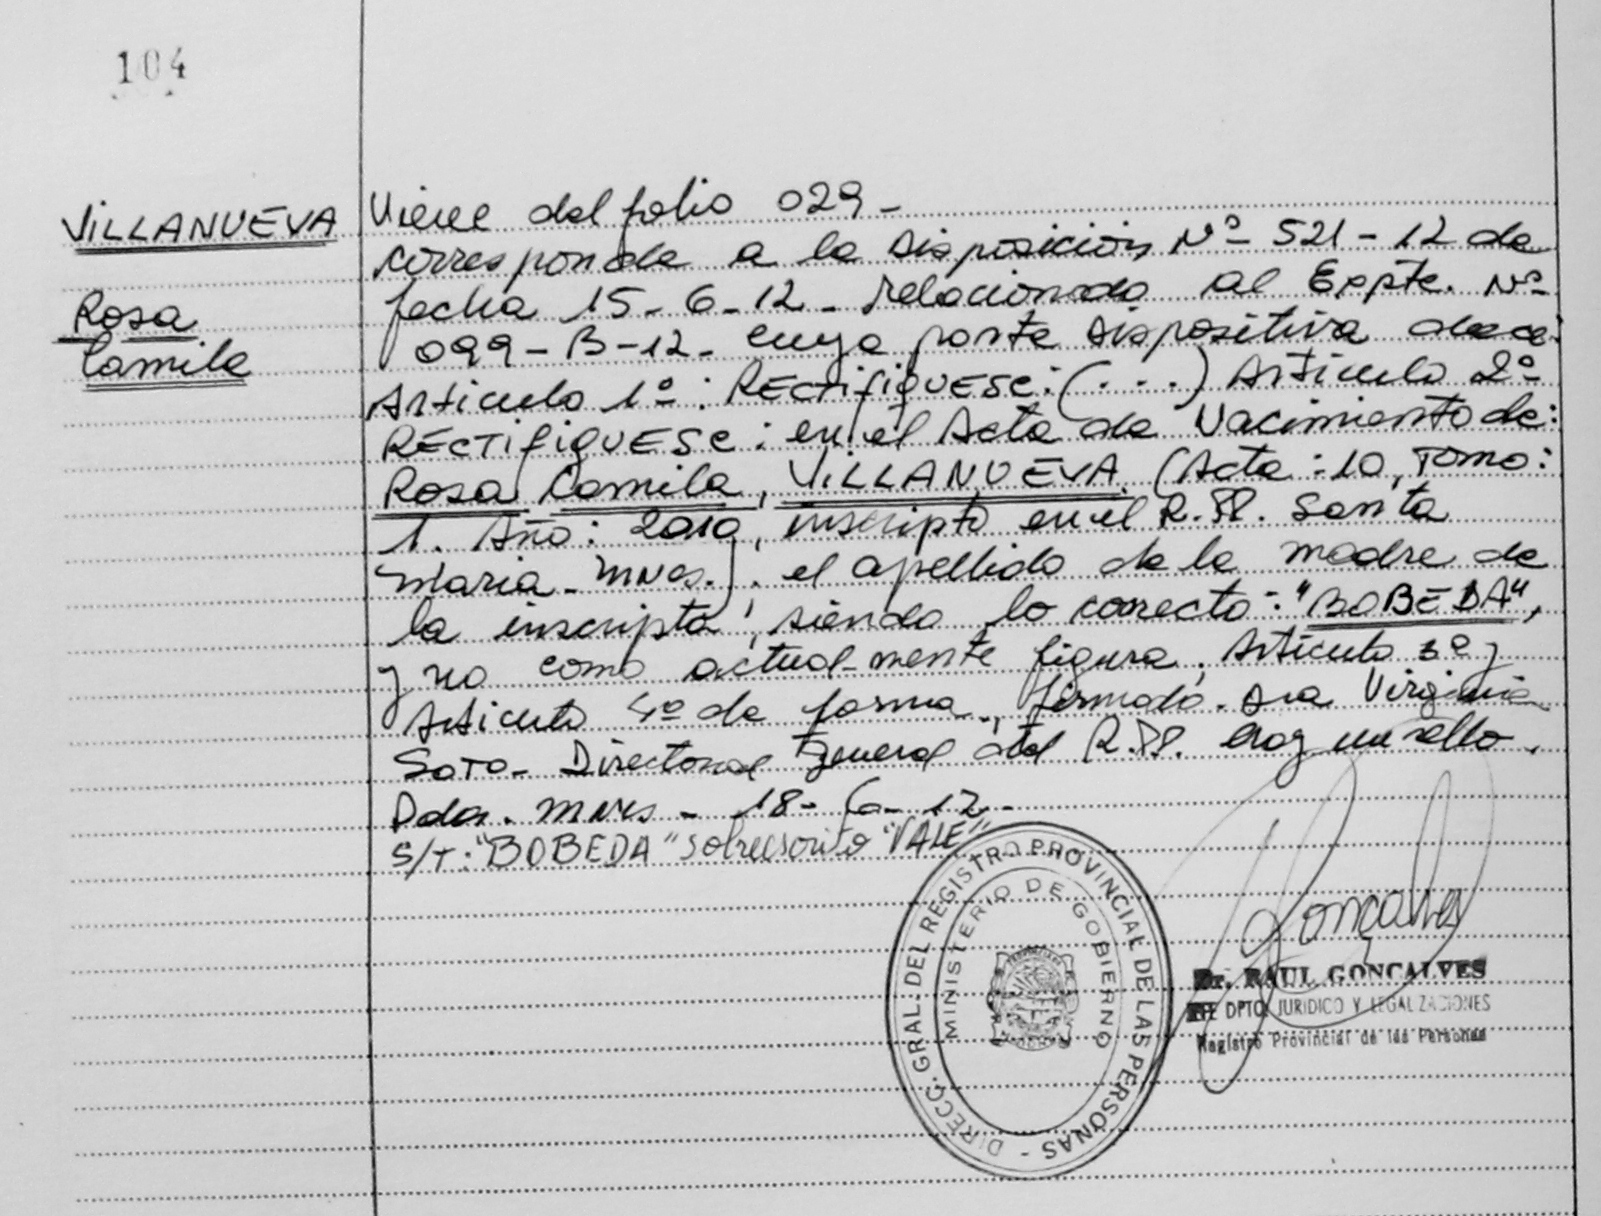 104
VILLANUEVA
Rosa
Camila
Viene del folio 029-
corresponde a la disposición Nº 521-12 de
fecha 15-6-12- relacionado al Expte. Nº
099-B-12- cuya parte dispositiva dice:
Articulo 1º: RECTIFIQUESE: (...) Articulo 2º
RECTIFIQUESE: en el Acta de Nacimiento de:
Rosa Camila, VILLANUEVA (Acta: 10, Tomo:
1. Año: 2010, inscripta en el R.PP. Santa
Maria- Mnes.). el apellido de la madre de
la inscripta, siendo lo correcto: "BOBEDA",
y no como actual-mente figura. Articulo 3º y
Articulo 4º de forma., firmado. Dra Virginia
Soto- Directora General del R.PP. Hay un sello.
Pdas. Mnes - 18-6-12-
S/T: "BOBEDA" sobreescrito "VALE"
DIRECC. GRAL. DEL REGISTRO PROVINCIAL DE LAS PERSONAS -
MINISTERIO DE GOBIERNO
Gonçalves
Dr. RAUL GONCALVES
JEFE DPTO. JURIDICO Y LEGALIZACIONES
Registro Provincial de las Personas